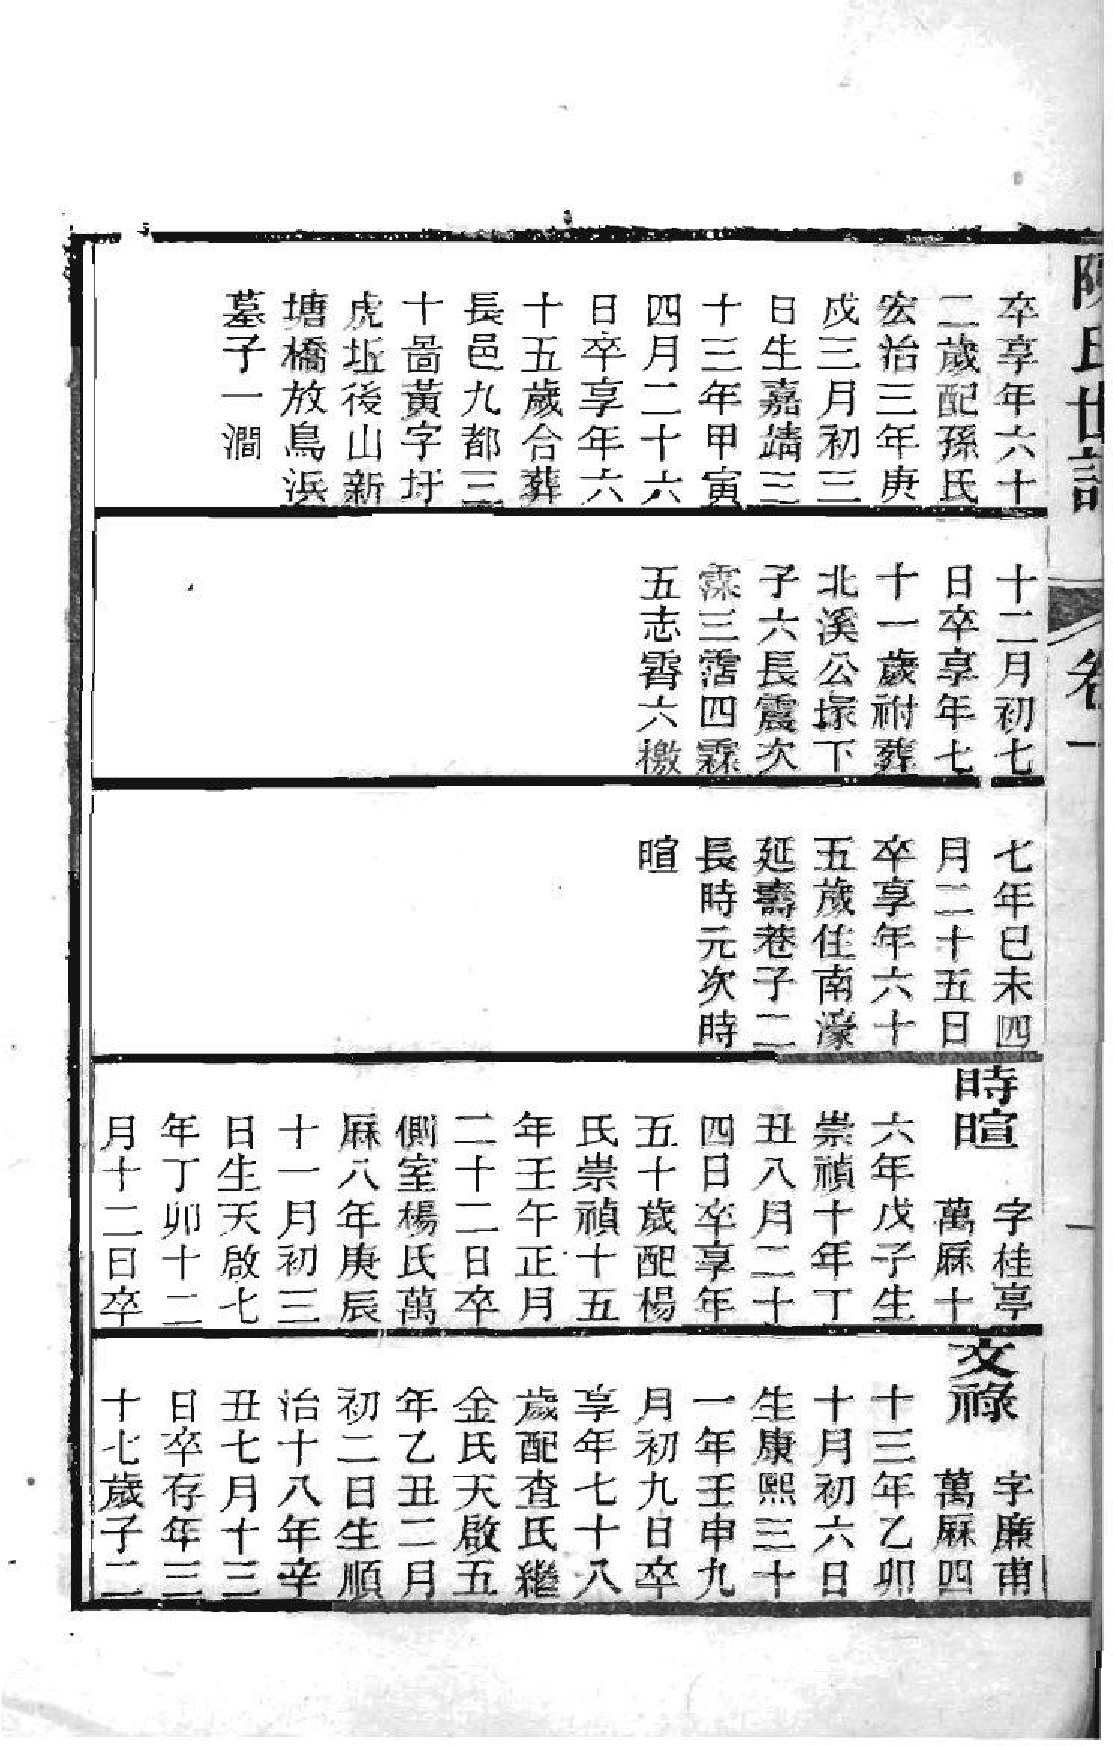 陳氏世譜
卷一
一
卒享年六十
二歲配孫氏
宏治三年庚
戌三月初三
日生嘉靖三
十三年甲寅
四月二十六
日卒享年六
十五歲合葬
長邑九都三
十啚黃字圩
虎坵後山新
塘橋放鳥浜
墓子一澗
十二月初七
日卒享年七
十一歲祔葬
北溪公塚下
子六長震次
霖三霑四霖
五志霄六檄
七年已未四
月二十五日
卒享年六十
五歲住南濠
延壽巷子二
長時元次時
暄
時暄
字桂亭
萬厤十
六年戊子生
崇禎十年丁
丑八月二十
四日卒享年
五十歲配楊
氏崇禎十五
年壬午正月
二十二日卒
側室楊氏萬
厤八年庚辰
十一月初三
日生天啟七
年丁卯十二
月十二日卒
文祿
字廉甫
萬厤四
十三年乙卯
十月初六日
生康熙三十
一年壬申九
月初九日卒
享年七十八
歲配查氏繼
金氏天啟五
年乙丑二月
初二日生順
治十八年辛
丑七月十三
日卒存年三
十七歲子二